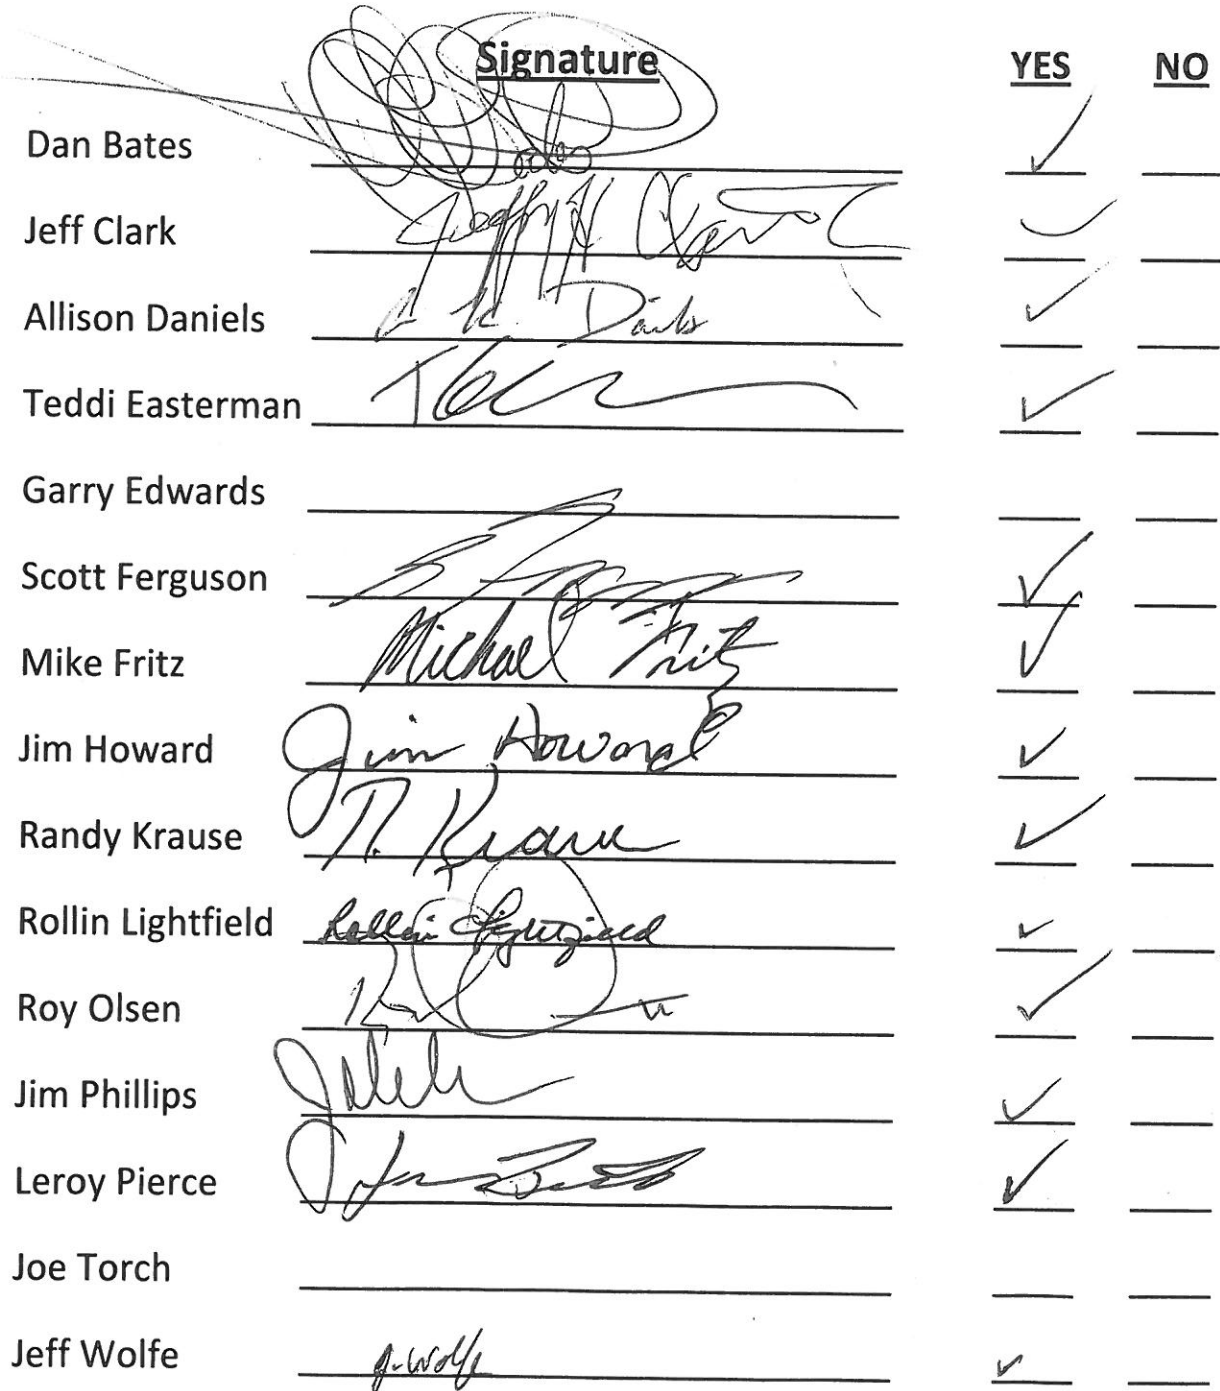 Signature YES NO
Dan Bates ✓
Jeff Clark ✓
Allison Daniels ✓
Teddi Easterman ✓
Garry Edwards
Scott Ferguson ✓
Mike Fritz Michael Fritz ✓
Jim Howard Jim Howard ✓
Randy Krause R. Krause ✓
Rollin Lightfield Rollin Lightfield ✓
Roy Olsen ✓
Jim Phillips ✓
Leroy Pierce ✓
Joe Torch
Jeff Wolfe J. Wolfe ✓